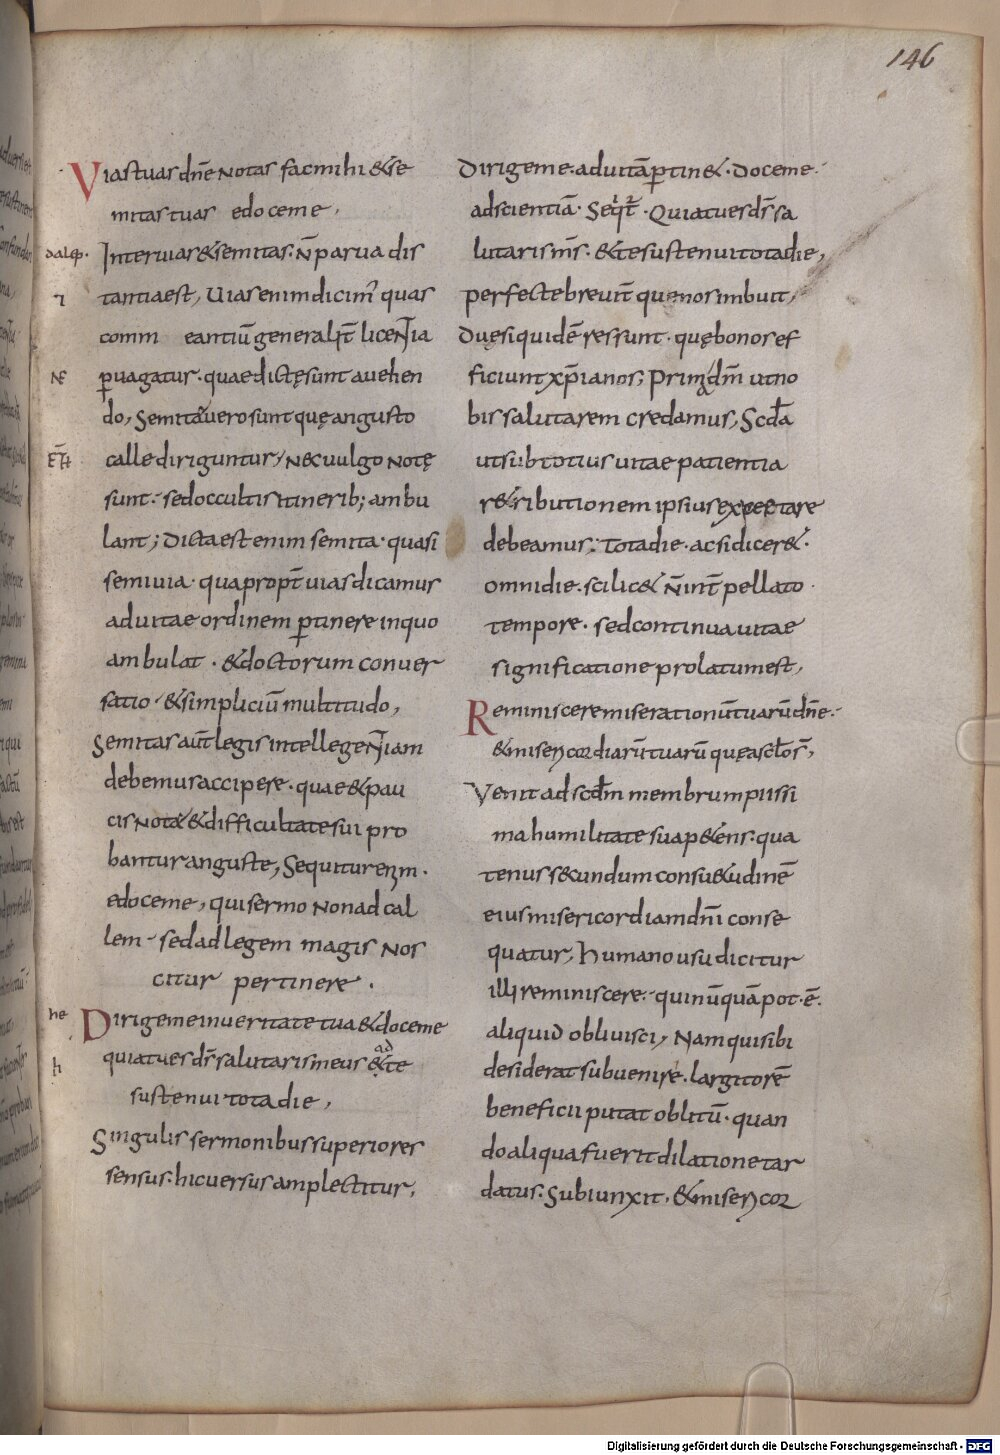 146
Vias tuas dnē notas fac mihi & se
mitas tuas edoceme,
dalep·
Inter uias & semitas· n̄ parua dis
tantia est, Uias enim dicim' quas
comm eantiū generalit̄ licentia
puagatur· quae dictę sunt a uehen
do, Semitae uero sunt quę angusto
calle diriguntur, nec uulgo notę
sunt· sed occultis itinerib; ambu
lant; dicta est enim semita· quasi
semiuia· quapropt̄ uias dicamus
ad uitae ordinem ptinere in quo
ambulat· & doctorum conuer
satio· & simpliciū multitudo,
Semitas aūt legis intellegentiam
debemus accipere· quae & pau
cis notae & difficultate sui pro
bantur anguste, Sequitur enim·
edoceme, qui sermo non ad cal
lem· sed ad legem magis nos
citur pertinere·
he
Dirige me in ueritate tua & doceme
quia tu es ds̄ salutaris meus & te
sustenui tota die,
Singulis sermonibus superiores
sensus· hic uersus amplectitur,
Dirige me· ad uitā ptin&· Doceme·
ad scientiā· Seqit̄· Quia tu es ds̄ sa
lutaris ms̄· & te sustenui tota die,
perfecte breuit̄ que nos imbuit,
Duę siquidē res sunt· quę bonos ef
ficiunt xp̄ianos, Prima dm̄ ut no
bis salutarem credamus, Scd̄a
ut sub totius uitae patientia
r&ributionem ipsius expectare
debeamus: Tota die· ac si dicer&·
omni die· scilic& n̄ int̄pellato·
tempore· sed continua uitae
significatione prolatum est,
Reminiscere miserationū tuarū dnē·
& misericordiarū tuarū quę a sclo s̄,
Venit ad scdm̄ membrum piissi
ma humilitate sua p&ens· qua
tenus secundum consu&udinē
eius misericordiam dnī conse
quatur, Humano usu dicitur
illi reminiscere· qui nūquā pot· ē·
aliquid obliuisci, Nam qui sibi
desiderat subuenire· largitorē
beneficii putat oblitū· quan
do aliqua fuerit dilatione tar
datus· Subiunxit, & misericor
Digitalisierung gefördert durch die Deutsche Forschungsgemeinschaft - DFG